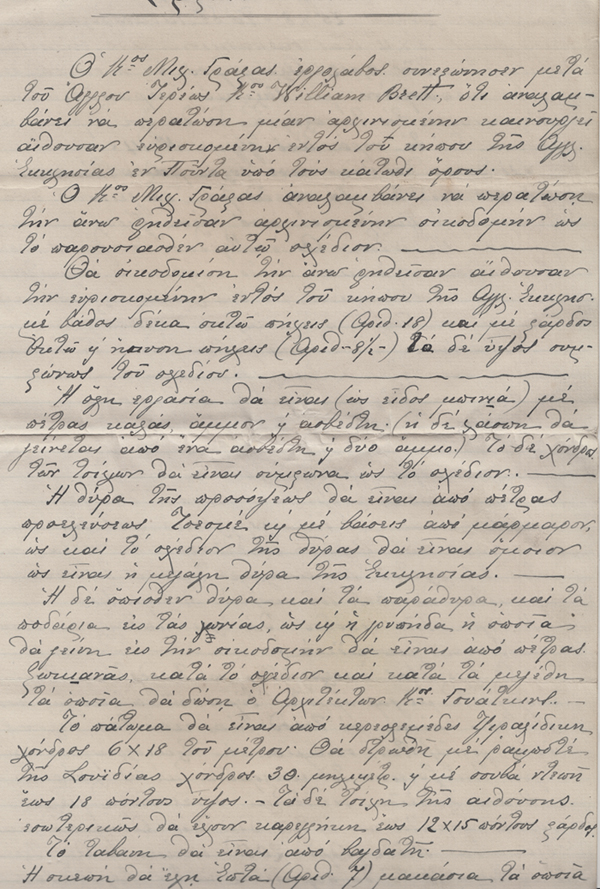 Ὁ Κος Μιχ. Γράζας ἐργολάβος συνεφώνησεν μετὰ
τοῦ Ἀγγλου Ἱερέως Κου William Brett, ὅτι ἀναλαμ-
βάνει νὰ περατώσῃ μίαν ἀρχινισμένην καινουργῆ
αἴθουσαν εὑρισκομένην ἐντὸς τοῦ κήπου τῆς Ἀγγ.
Ἐκκλησίας ἐν Πούντα ὑπὸ τοὺς κάτωθι ὅρους.
Ὁ Κος Μιχ. Γράζας ἀναλαμβάνει νὰ περατώσῃ
τὴν ἄνω ῥηθεῖσαν ἀρχινισμένην οἰκοδομὴν ὡς
τὸ παρουσιασθὲν αὐτῷ σχέδιον.
Θὰ οἰκοδομήσῃ τὴν ἄνω ῥηθεῖσαν αἴθουσαν
τὴν εὑρισκομένην ἐντὸς τοῦ κήπου τῆς Ἀγγ. Ἐκκλησ.
μὲ βάθος δέκα ὀκτὼ πήχεις (Ἀριθ. 18) καὶ μὲ φάρδος
ὀκτὼ ἥμισυ πήχεις (Ἀριθ. 8½-) τὸ δὲ ὕψος συμ-
φώνως τοῦ σχεδίου.
Ἡ ὅλη ἐργασία θὰ εἶναι (ὡς εἶδος) μὲ
πέτρας καλάς, ἄμμον ἀσβέστη. (ἡ δὲ λάσπη θὰ
γείνεται ἀπὸ ἕνα ἀσβέστη δύο ἄμμο.) Τὸ δὲ χόνδρος
τῶν τοίχων θὰ εἶναι σύμφωνα ὡς τὸ σχέδιον.
Ἡ θύρα τῆς προσόψεως θὰ εἶναι ἀπὸ πέτρας
προελεύσεως Τσεσμὲ μὲ βάσεις ἀπὸ μάρμαρον,
ὡς καὶ τὸ σχέδιον τῆς θύρας θὰ εἶναι ὅμοιον
ὡς εἶναι ἡ μεγάλη θύρα τῆς Ἐκκλησίας.
Ἡ δὲ ὄπισθεν θύρα καὶ τὰ παράθυρα, καὶ τὰ
ποδάρια εἰς τὰς γωνίας, ὡς ἡ ὁποῖα
θὰ γείνῃ εἰς τὴν οἰκοδομὴν θὰ εἶναι ἀπὸ πέτρας
κατὰ τὸ σχέδιον καὶ κατὰ τὰ μεγέθη
τὰ ὁποῖα θὰ δώσῃ ὁ Ἀρχιτέκτων Κος
Τὸ πάτωμα θὰ εἶναι ἀπὸ
χόνδρος 6 × 18 τοῦ μέτρου. Θὰ στρωθῇ μὲ
τῆς Σουηδίας χόνδρος 30 μὲ σουβὰ
ἕως 18 πόντους ὕψος. - Τὰ δὲ τοίχη τῆς αἰθούσης
ἐσωτερικῶς θὰ ἔχουν ἕως 12 × 15 πόντος φάρδος
Τὸ ταβάνι θὰ εἶναι ἀπὸ βαγδατῆ.
Ἡ σκέπη θὰ ἔχῃ ἑπτὰ (Ἀριθ. 7) μακάσια τὰ ὁποῖα